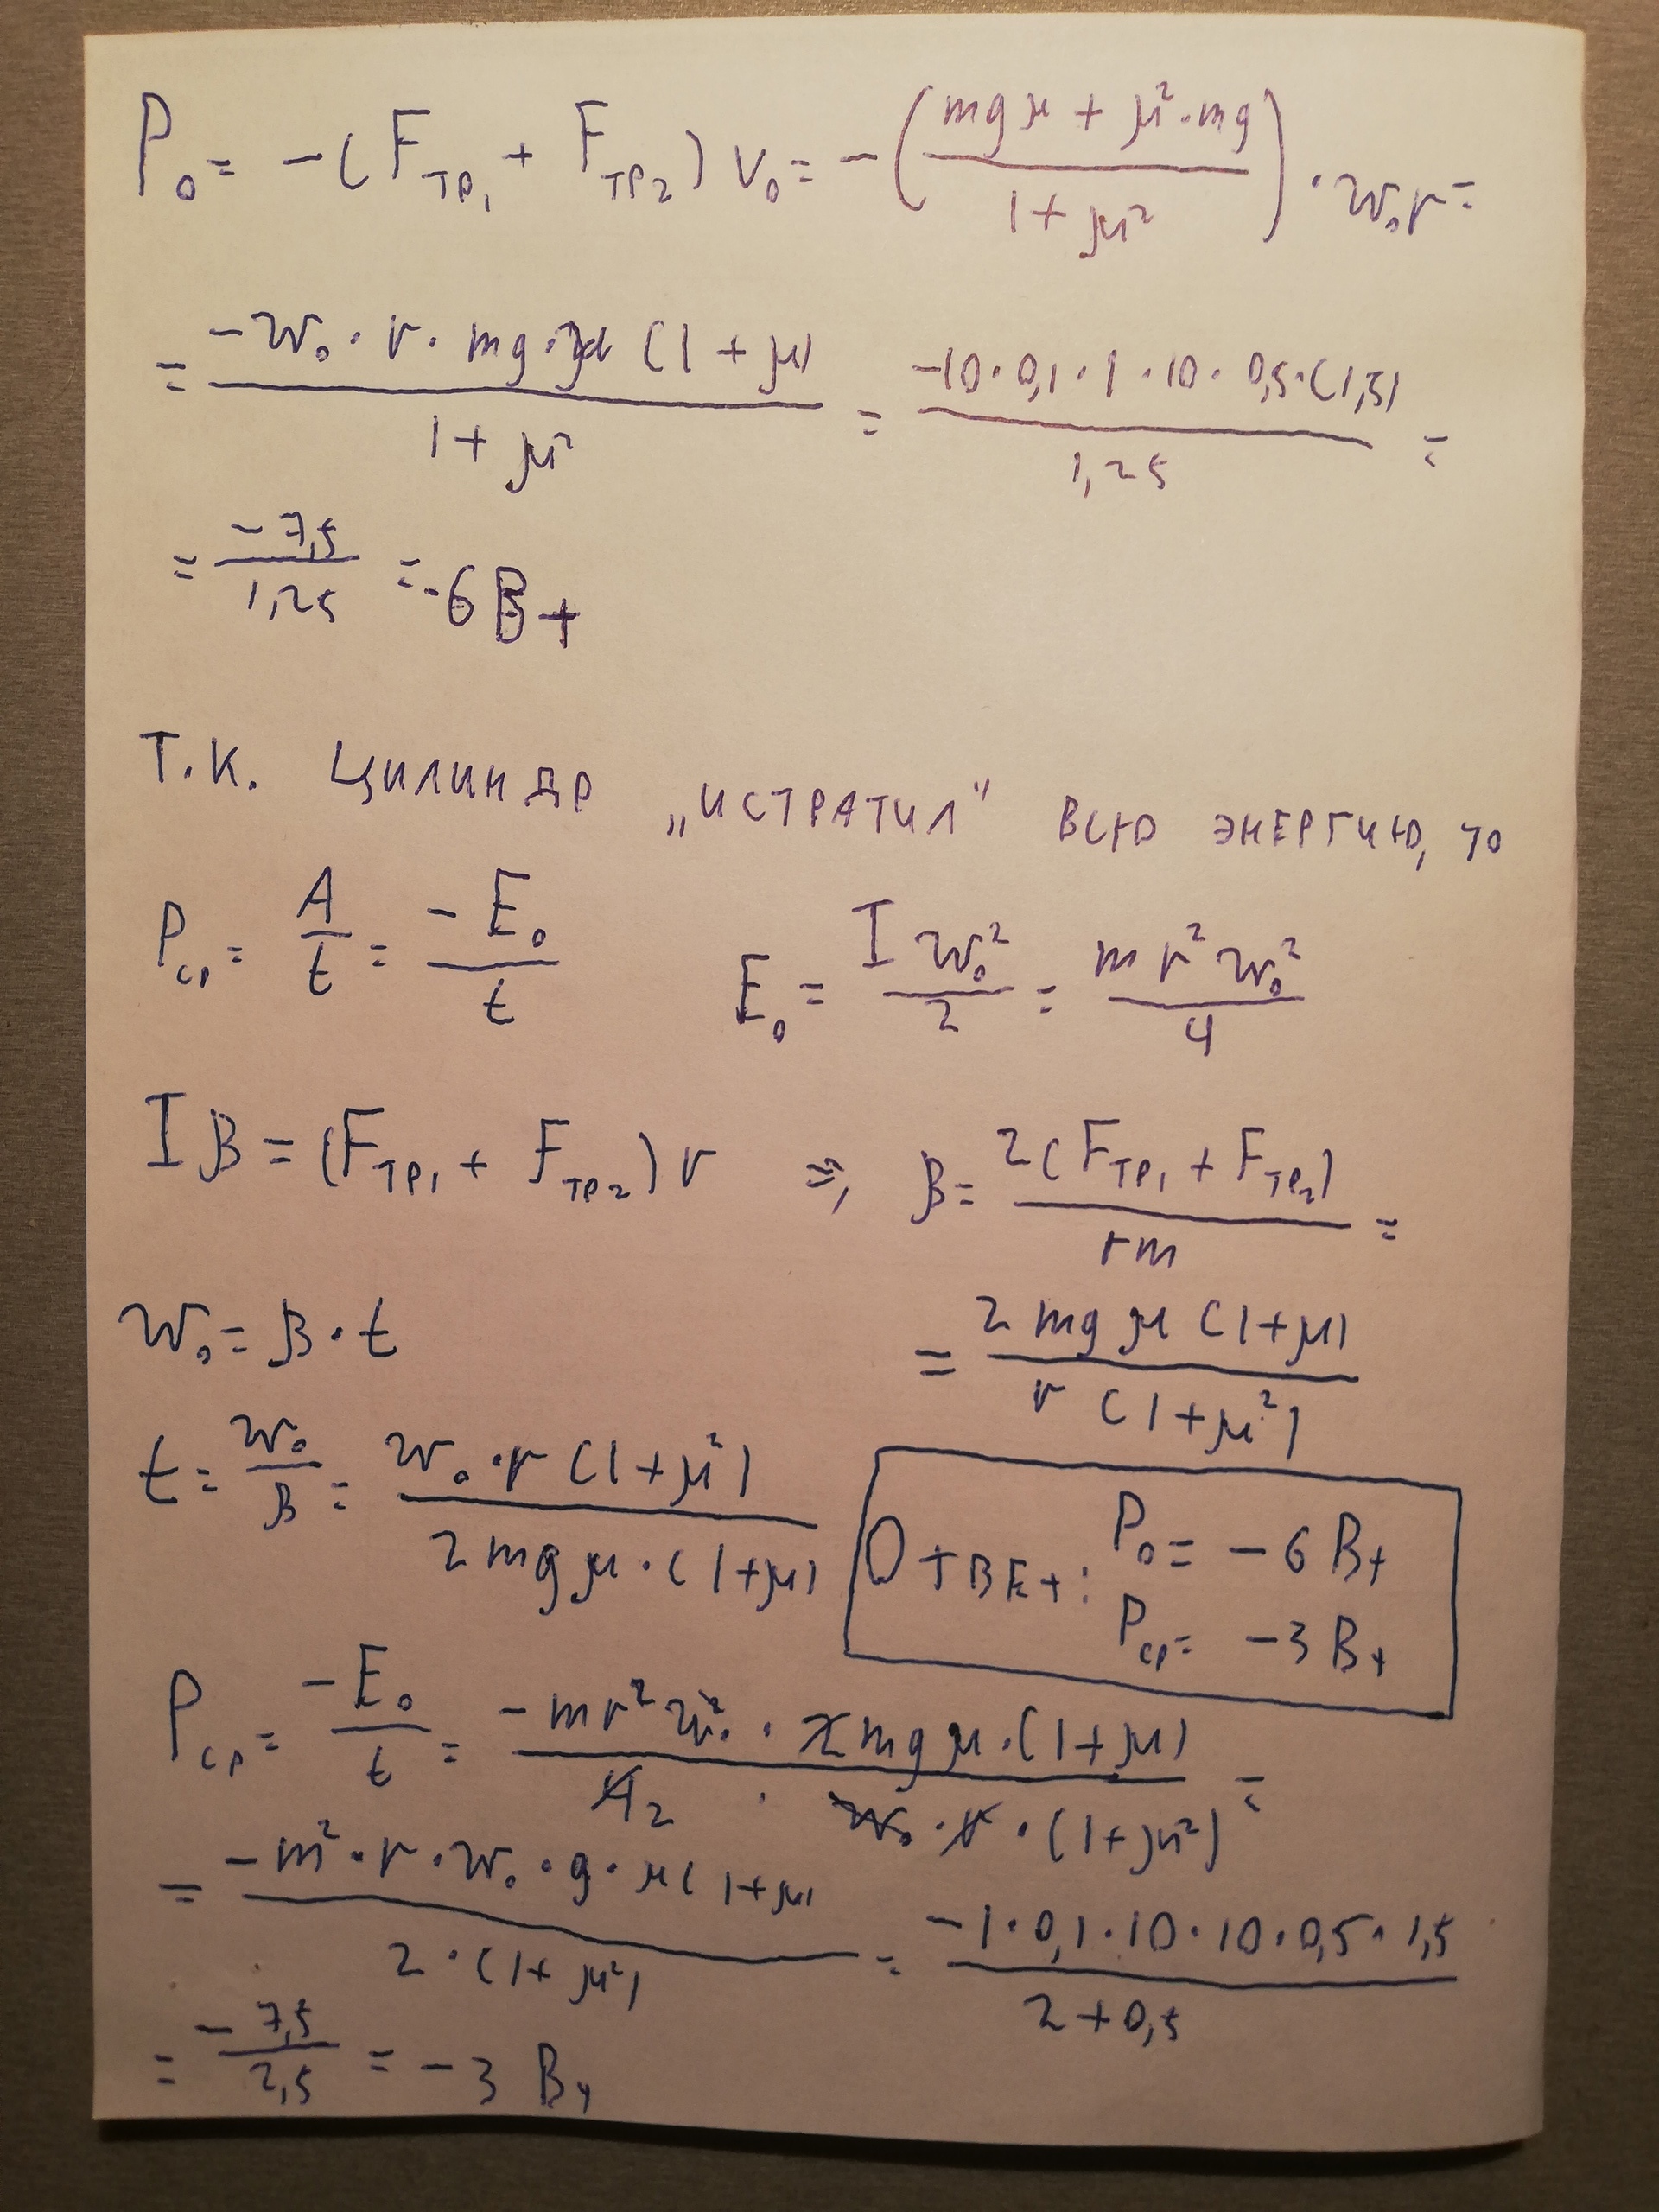 P₀ = -(Fтр₁ + Fтр₂) v₀ = -((mgμ + μ²·mg)/(1+μ²)) · w₀r =
= (-w₀·r·mg·μ(1+μ))/(1+μ²) = (-10·0,1·1·10·0,5·(1,5))/1,25 =
= -7,5/1,25 = -6 Вт
Т.К. ЦИЛИНДР „ИСТРАТИЛ" ВСЮ ЭНЕРГИЮ, ТО
Pср = A/t = -E₀/t   E₀ = Iw₀²/2 = mr²w₀²/4
Iβ = (Fтр₁ + Fтр₂)r ⇒, β = 2(Fтр₁ + Fтр₂)/rm =
= 2mgμ(1+μ)/r(1+μ²)
w₀ = β·t
t = w₀/β = w₀·r(1+μ²)/2mgμ·(1+μ)
ОТВЕТ: P₀ = -6 Вт
Pср = -3 Вт
Pср = -E₀/t = (-mr²w₀²·2mgμ·(1+μ))/(4 2·w₀·r·(1+μ²)) =
= (-m²·r·w₀·g·μ(1+μ))/(2·(1+μ²)) = (-1·0,1·10·10·0,5·1,5)/(2+0,5)
= -7,5/2,5 = -3 Вт